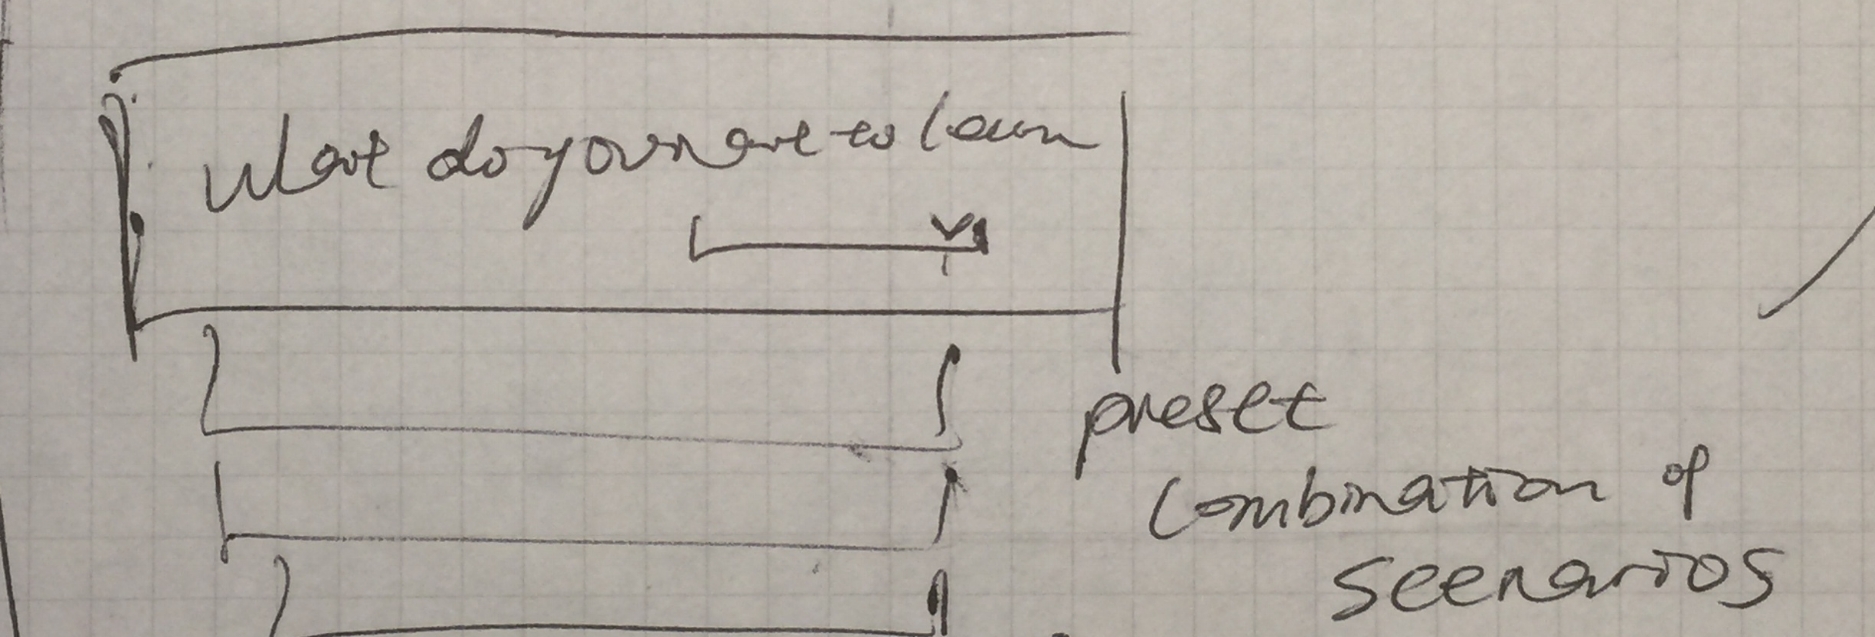 What do you want to learn
preset
combination of
scenarios